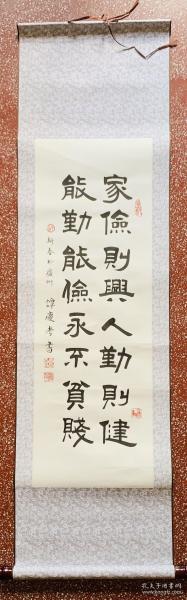 家儉則興人勤則健
能勤能儉永不貧賤
新春於廣州
譚慶孝書
孔夫子旧书网